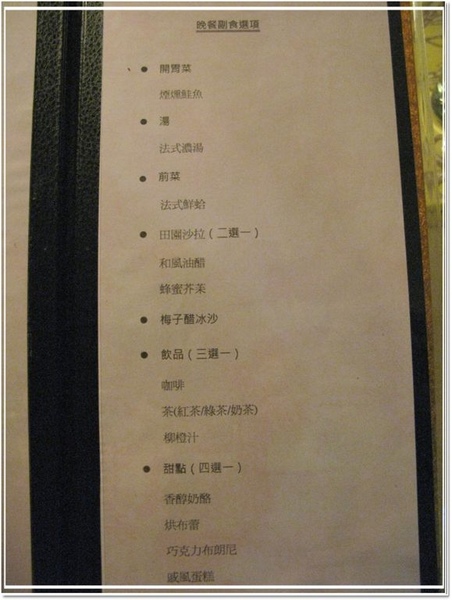 晚餐副食選項
● 開胃菜
煙燻鮭魚
● 湯
法式濃湯
● 前菜
法式鮮蛤
● 田園沙拉（二選一）
和風油醋
蜂蜜芥茉
● 梅子醋冰沙
● 飲品（三選一）
咖啡
茶(紅茶/綠茶/奶茶)
柳橙汁
● 甜點（四選一）
香醇奶酪
烘布蕾
巧克力布朗尼
戚風蛋糕